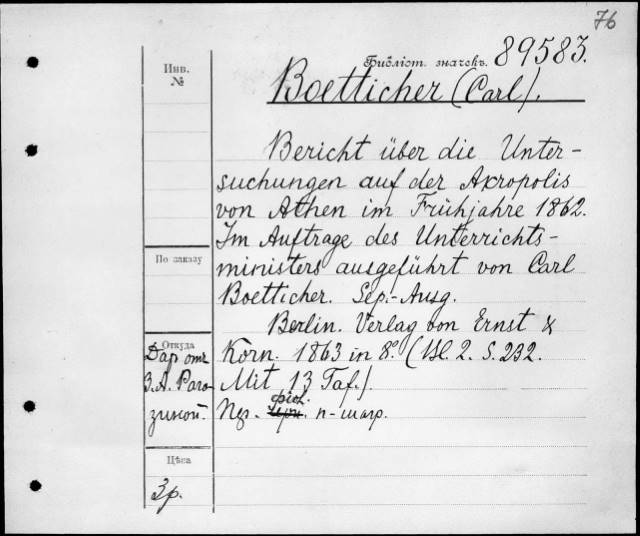 76
Библіот. значекъ. 89583.
Инв.
№
Boetticher (Carl).
Bericht über die Unter-
suchungen auf der Akropolis
von Athen im Frühjahre 1862.
Im Auftrage des Unterrichts-
ministers ausgeführt von Carl
Boetticher. Sep.-Ausg.
Berlin. Verlag von Ernst &
Korn. 1863 in 8°. (Bl. 2. S. 232.
Mit 13 Taf.)
фіол.
п-шагр.
По заказу
Откуда
Даръ отъ
З. А. Раго-
зиной.
Цѣна
3р.